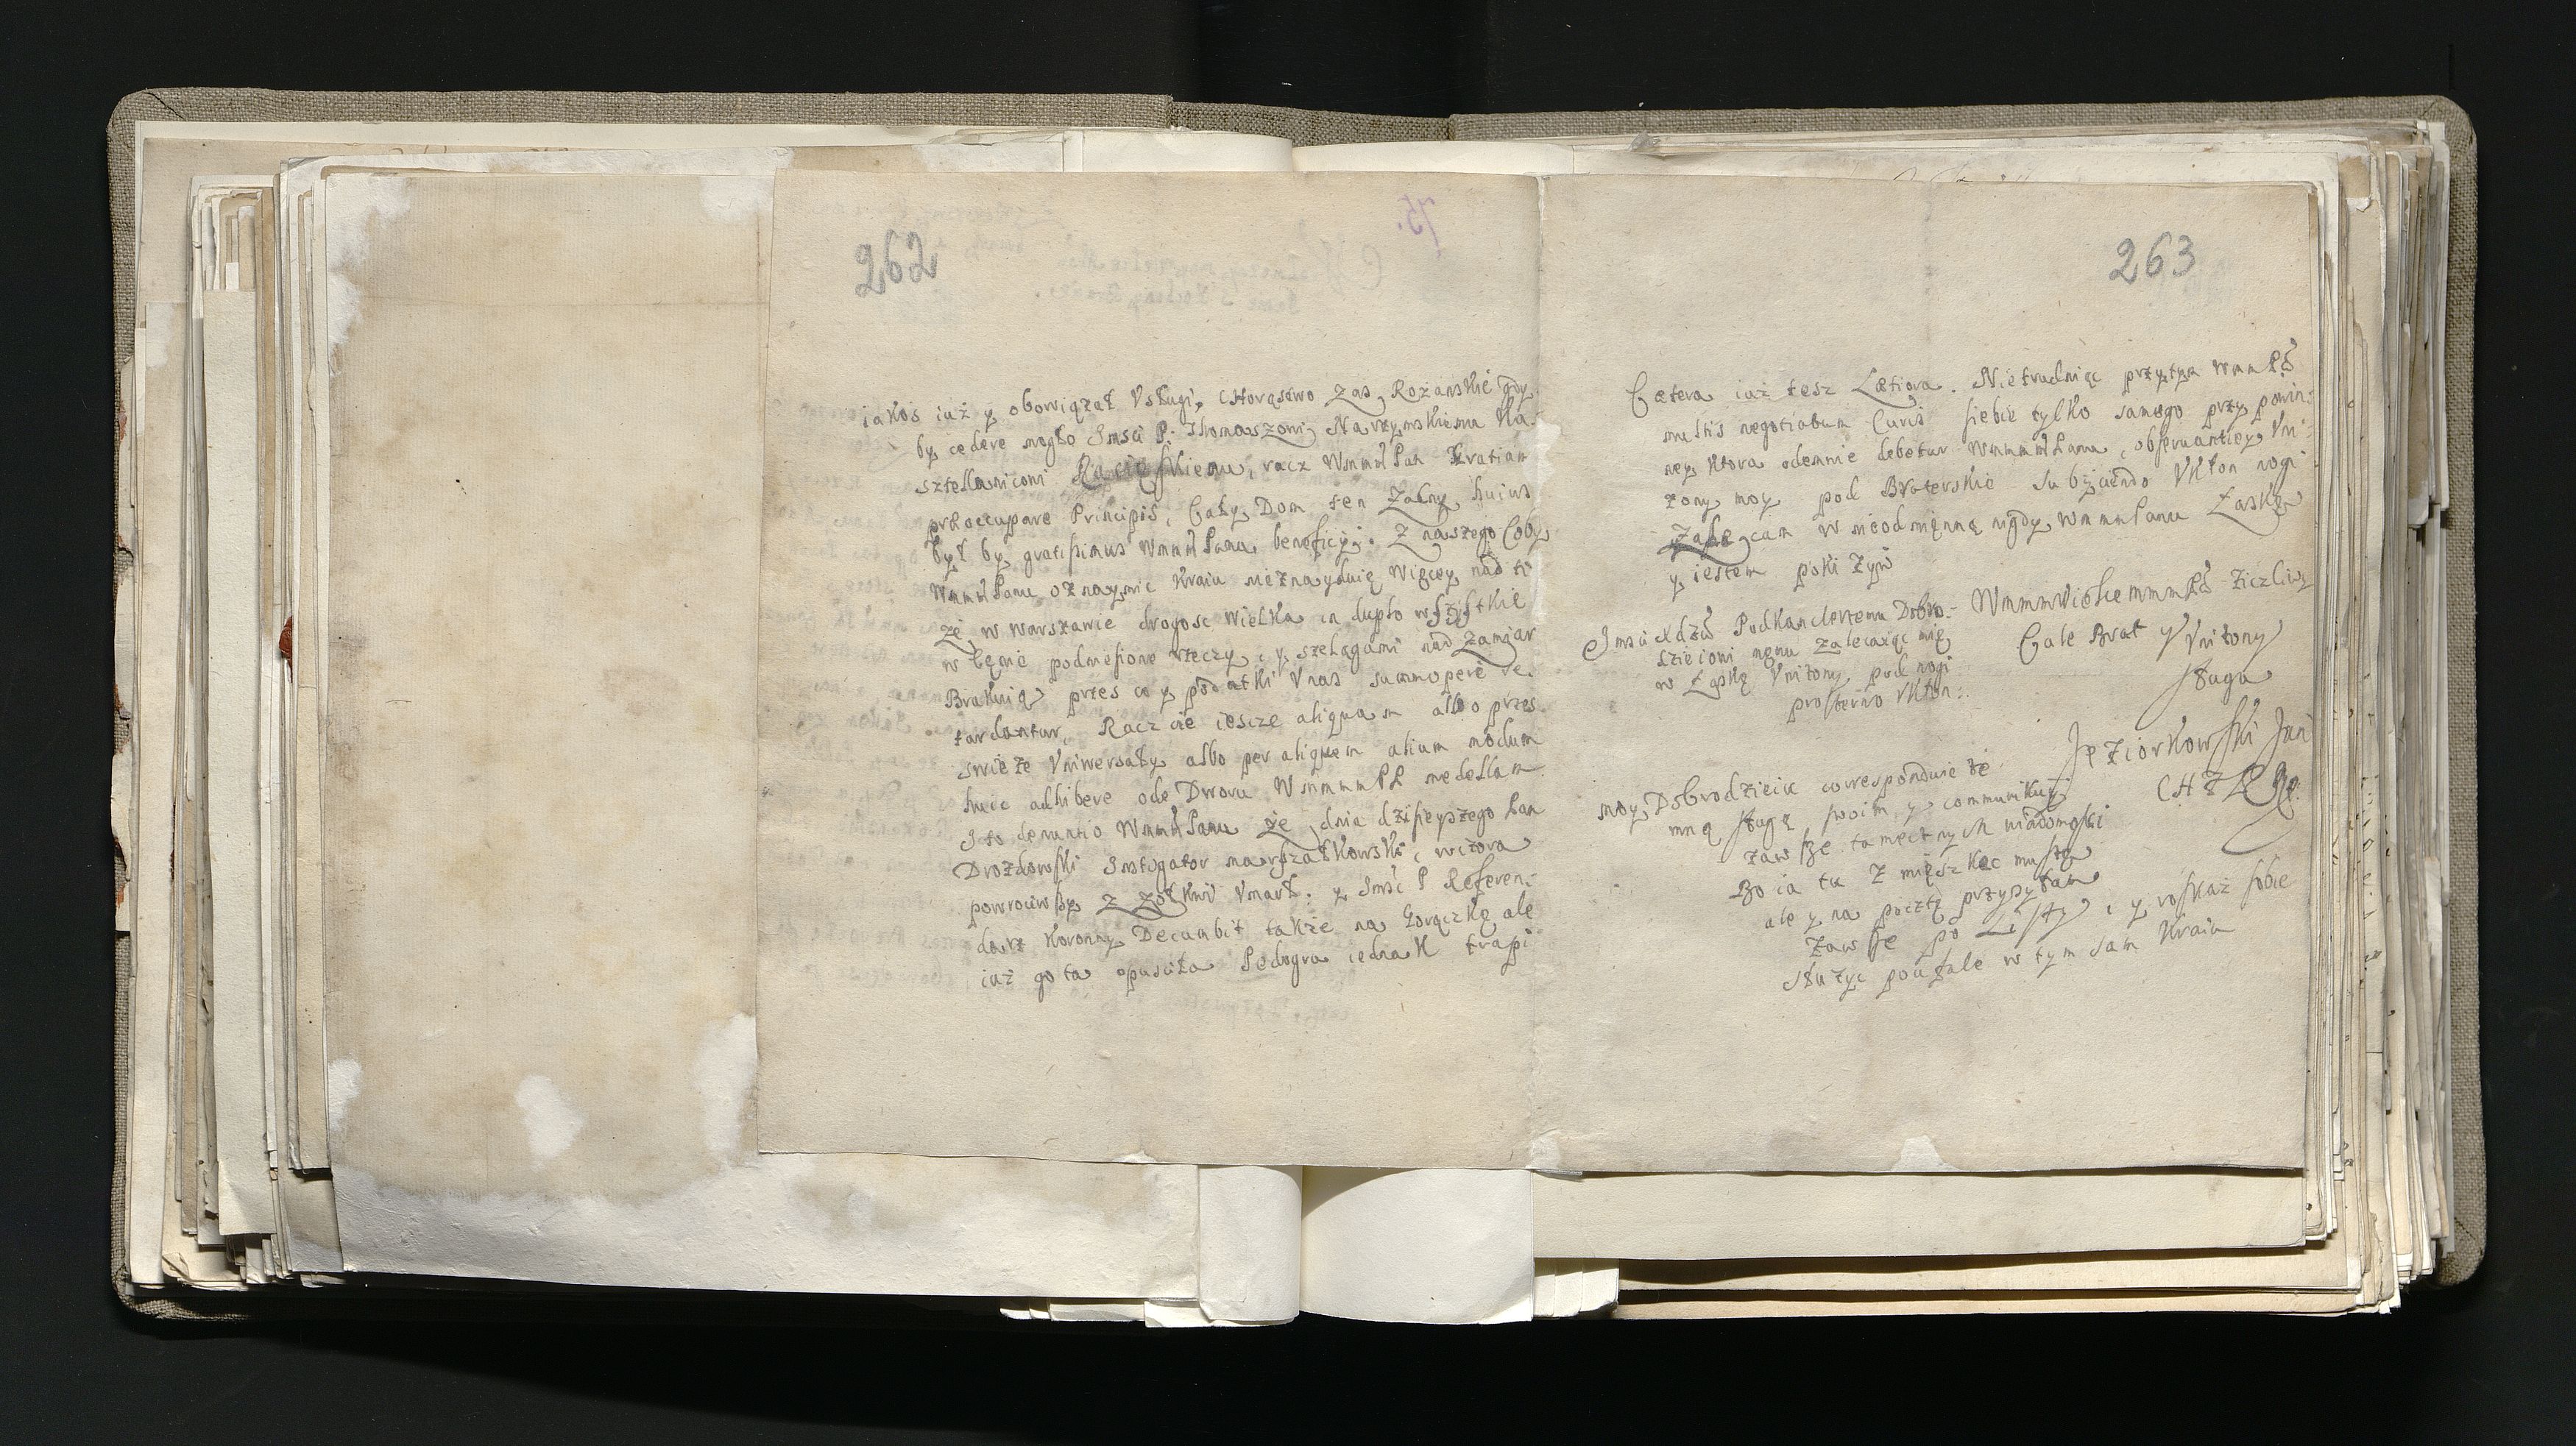 262
iakos iuż y obowiązał Vsługi, Chorąstwo zas Rożanskie gdy
by cedere mogło Jmsci P: Thomaszowi Narzymskiemu Ka-
sztellaniconi Raciąskiemu, racz WmmmPan gratiam
præoccupare Principis, Cały Dom ten Zacny huius
był by gratissimus WmmmPana beneficij. Z naszego Coby
WmmmPanu oznaymic Kraiu nieznayduię Więcey nad to
że w warszawie drogosc wielka in duplo wszystkie
w cęnie podniesione rzeczy, y szelągami nad zamiar
Brakuią przes co y podatki Vnas summopere re-
tardantur, Racz cie iescze aliquam albo przes
swieże Vniwersały albo per aliquem alium modum
huic adhibere ode Dworu WmmmPP medellam
Jto denuntio WmmmPanu że dnia dzisieyszego Pan
Drozdowski Instigator marszałkowski, wczora
powrociwszy z Zołkwi Vmarł. y Jmsc P Referen-
darz Koronny Decumbit także na Gorączkę ale
iuż go ta opusciła Pedogra iednak trapi
263
Cætera iaż tesz Lætiora. Nietrudniąc przytym WmmPá
multis negotiabum Curis siebie tylko samego przy powin-
ney ktora odemnie debetur WmmmmPanu, obseruantiey Vni-
żony moy pod Braterskie subÿciendo Vkłon nogi
Zalecam w nieodmięnną nigdy WmmmPanu Łaskę
y iestem poki żyw
WmmmWielce mmmPá Ziczliwy
Cale Brat y Vniżony
Sługa
Jeziorkowski Jan
CHZ
Jmsci Xdzu Podkanclerzemu Dobro-
dzieiowi męmu zalecaiąc mię
w Łaskę Vniżony pod nogi
prosterno Vkłon:
moy Dobrodzieiu corresponduie że
mną sługą swoim y communikuy
zawsze tamecznych wiadomosci
Bo ia tu zmięszkac muszę
ale y na pocztę przysyłam
zawsze po Listy, y roskaż sobie
służyc poufale w tym sam Kraiu